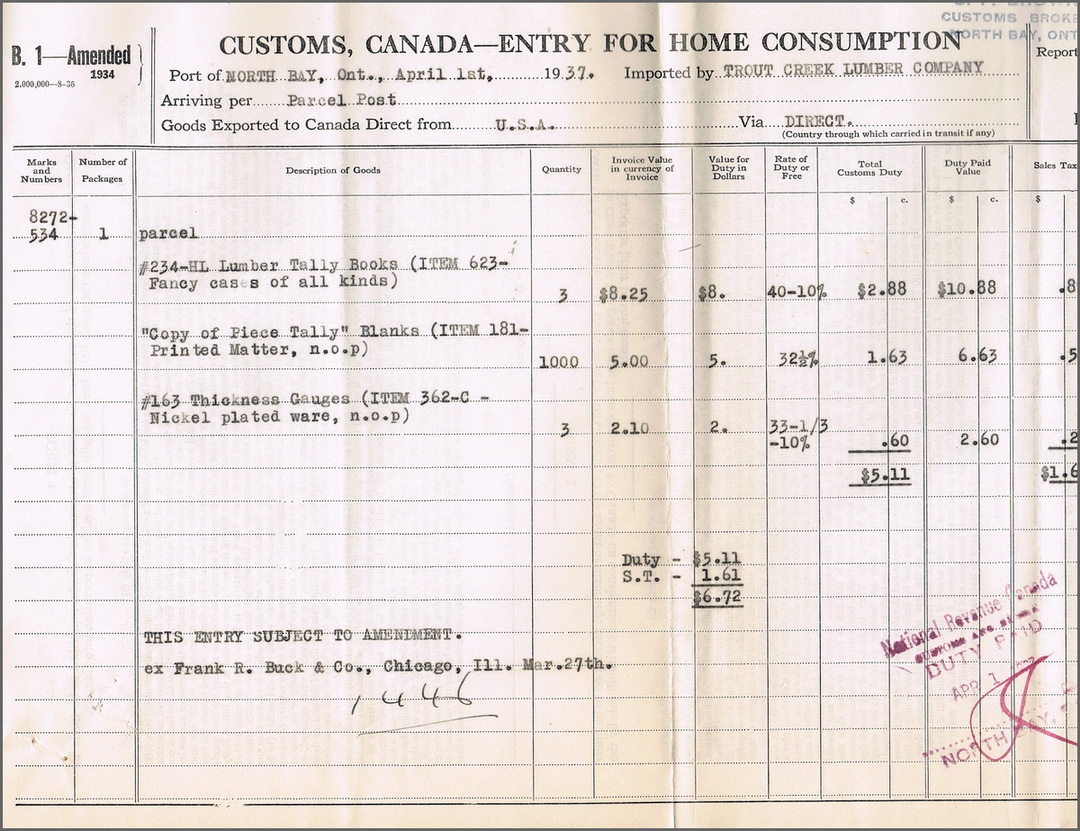 CUSTOMS BROKE
NORTH BAY, ONT
B. 1—Amended
1934
2,000,000—8-36
CUSTOMS, CANADA—ENTRY FOR HOME CONSUMPTION
Report
Port of NORTH BAY, Ont., April 1st, 1937. Imported by TROUT CREEK LUMBER COMPANY
Arriving per Parcel Post
Goods Exported to Canada Direct from U.S.A. Via DIRECT.
(Country through which carried in transit if any)
Marks and Numbers
Number of Packages
Description of Goods
Quantity
Invoice Value in currency of Invoice
Value for Duty in Dollars
Rate of Duty or Free
Total Customs Duty
Duty Paid Value
Sales Tax
$ c. $ c. $
8272-
534 1 parcel
#234-HL Lumber Tally Books (ITEM 623-
Fancy cases of all kinds)
3 $8.25 $8. 40-10% $2.88 $10.88 .8
"Copy of Piece Tally" Blanks (ITEM 181-
Printed Matter, n.o.p)
1000 5.00 5. 32½% 1.63 6.63 .5
#163 Thickness Gauges (ITEM 362-C -
Nickel plated ware, n.o.p)
3 2.10 2. 33-1/3
-10% .60 2.60 .2
$5.11 $1.6
Duty - $5.11
S.T. - 1.61
$6.72
THIS ENTRY SUBJECT TO AMENDMENT.
ex Frank R. Buck & Co., Chicago, Ill. Mar.27th.
1446
National Revenue Canada
DUTY PAID
APR 1
NORTH BAY,